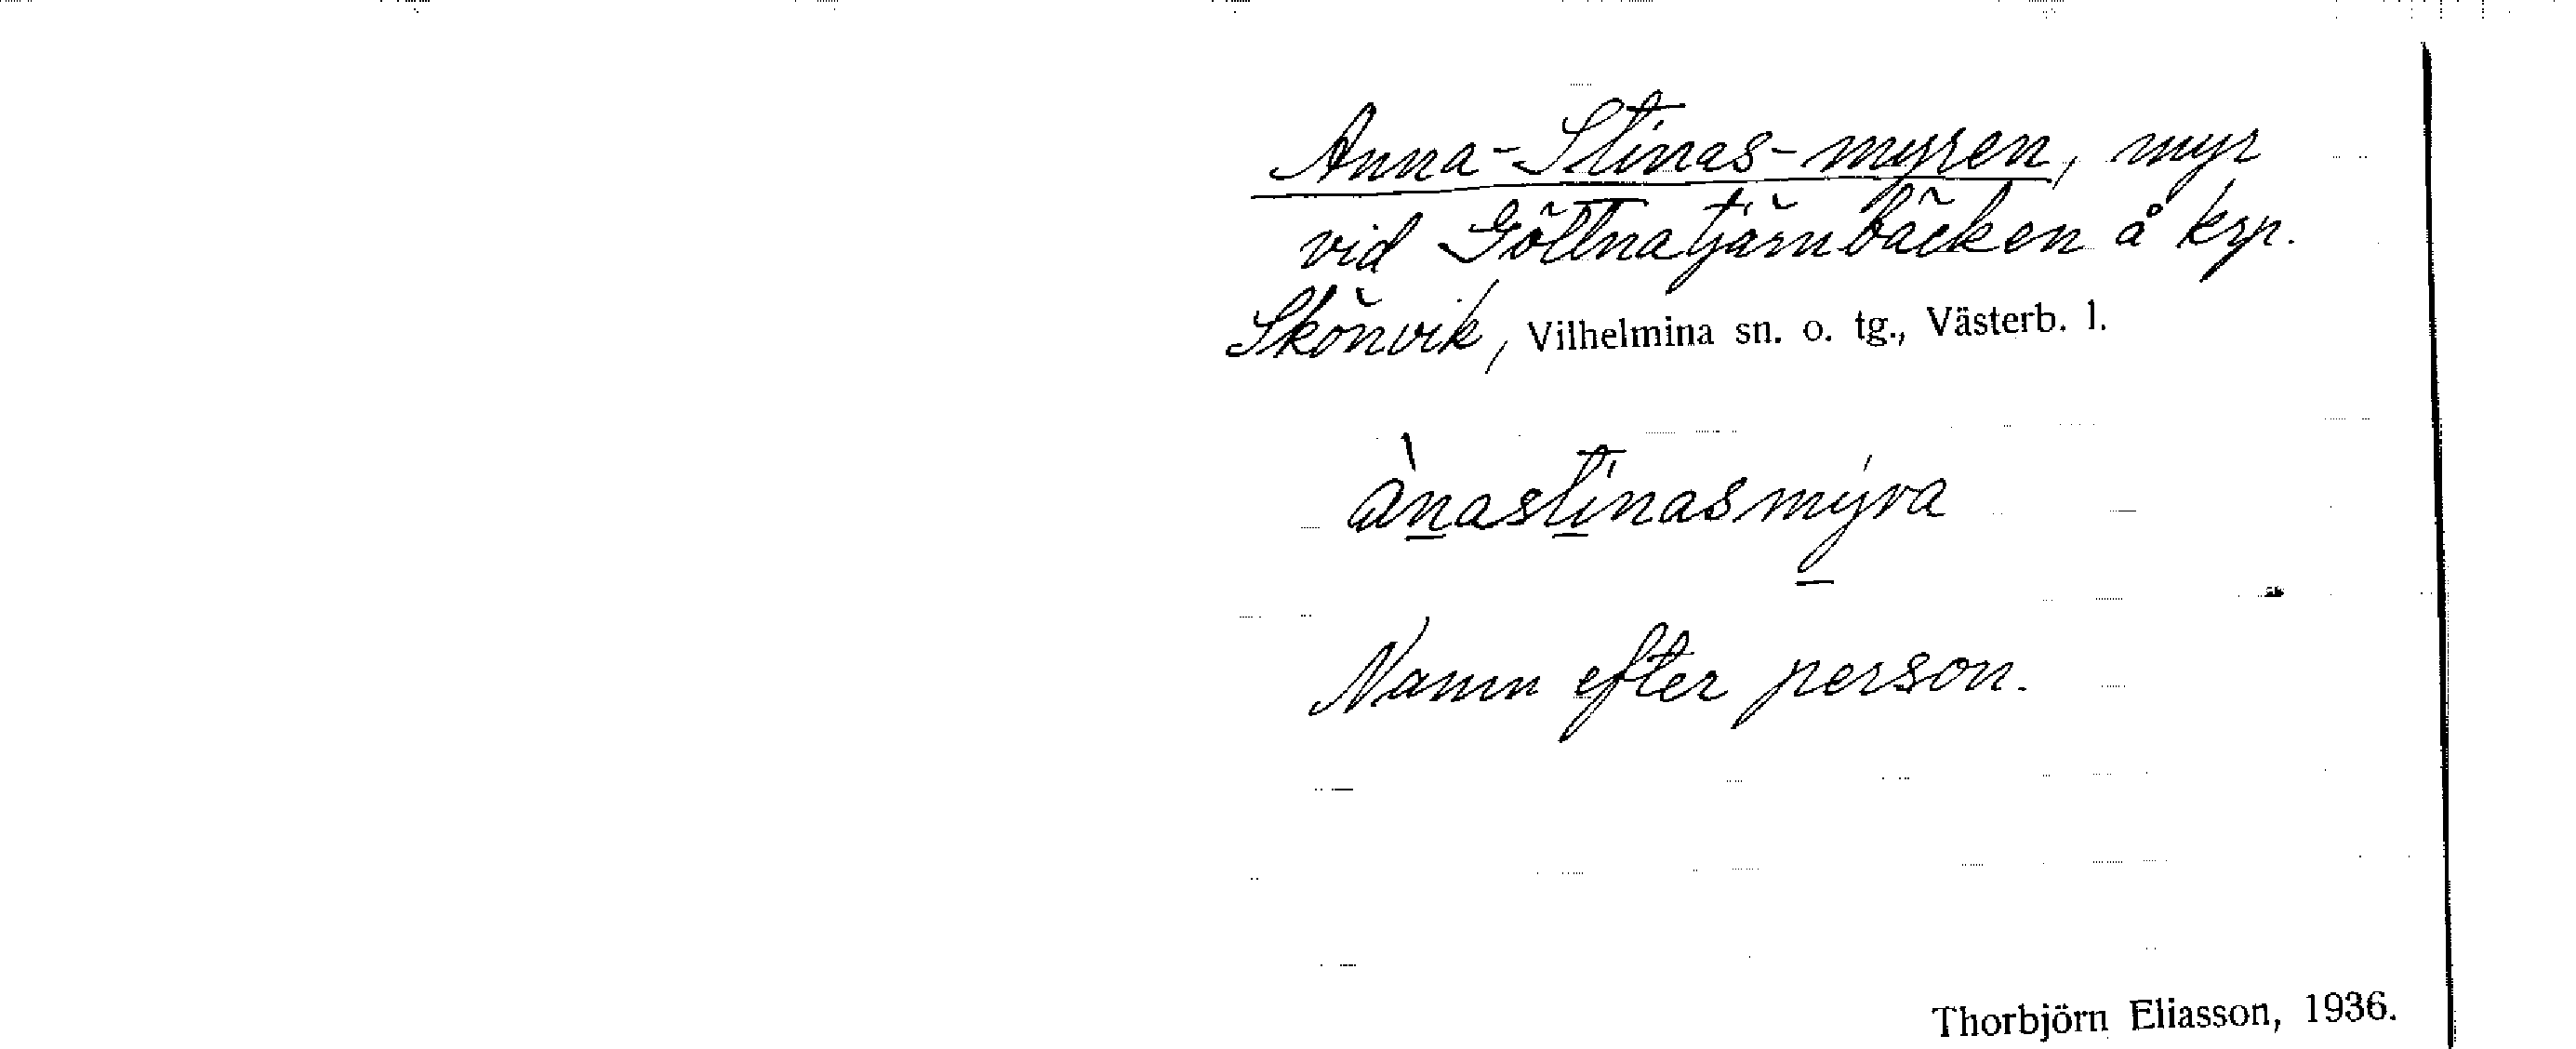 Anna-Stinas-myren, myr
vid Göllnatjärnbäcken å krp.
Skönvik, Vilhelmina sn. o. tg., Västerb. l.
ànastinasmýra
Namn efter person.
Thorbjörn Eliasson, 1936.